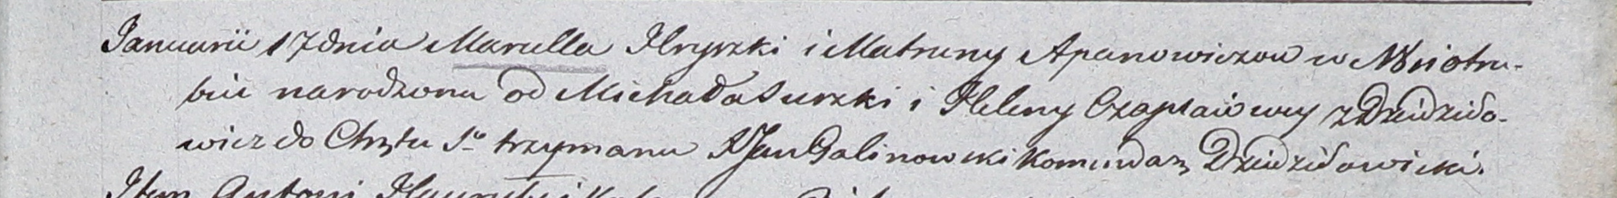 Januarii 17 dnia Marulla Hryszki i Matruny Apanowiczow w Wiotru-
biu narodzona od Michała Suszki i Heleny Czaplaiowey z Dziedziło-
wicz do Chrztu So trzymana XJan Galinowski Komendarz Dziedziłowicki.
Item Antoni